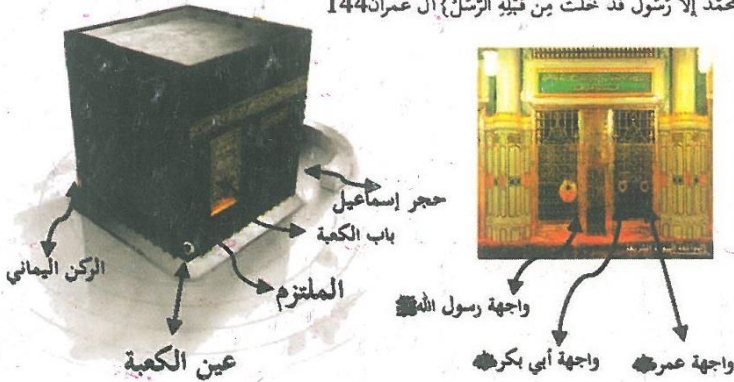 محمد إلا رسول قد خلت من قبله الرسل} آل عمران144
حجر إسماعيل
باب الكعبة
الركن اليماني
الملتزم
عين الكعبة
واجهة رسول الله ﷺ
واجهة أبي بكر
واجهة عمر